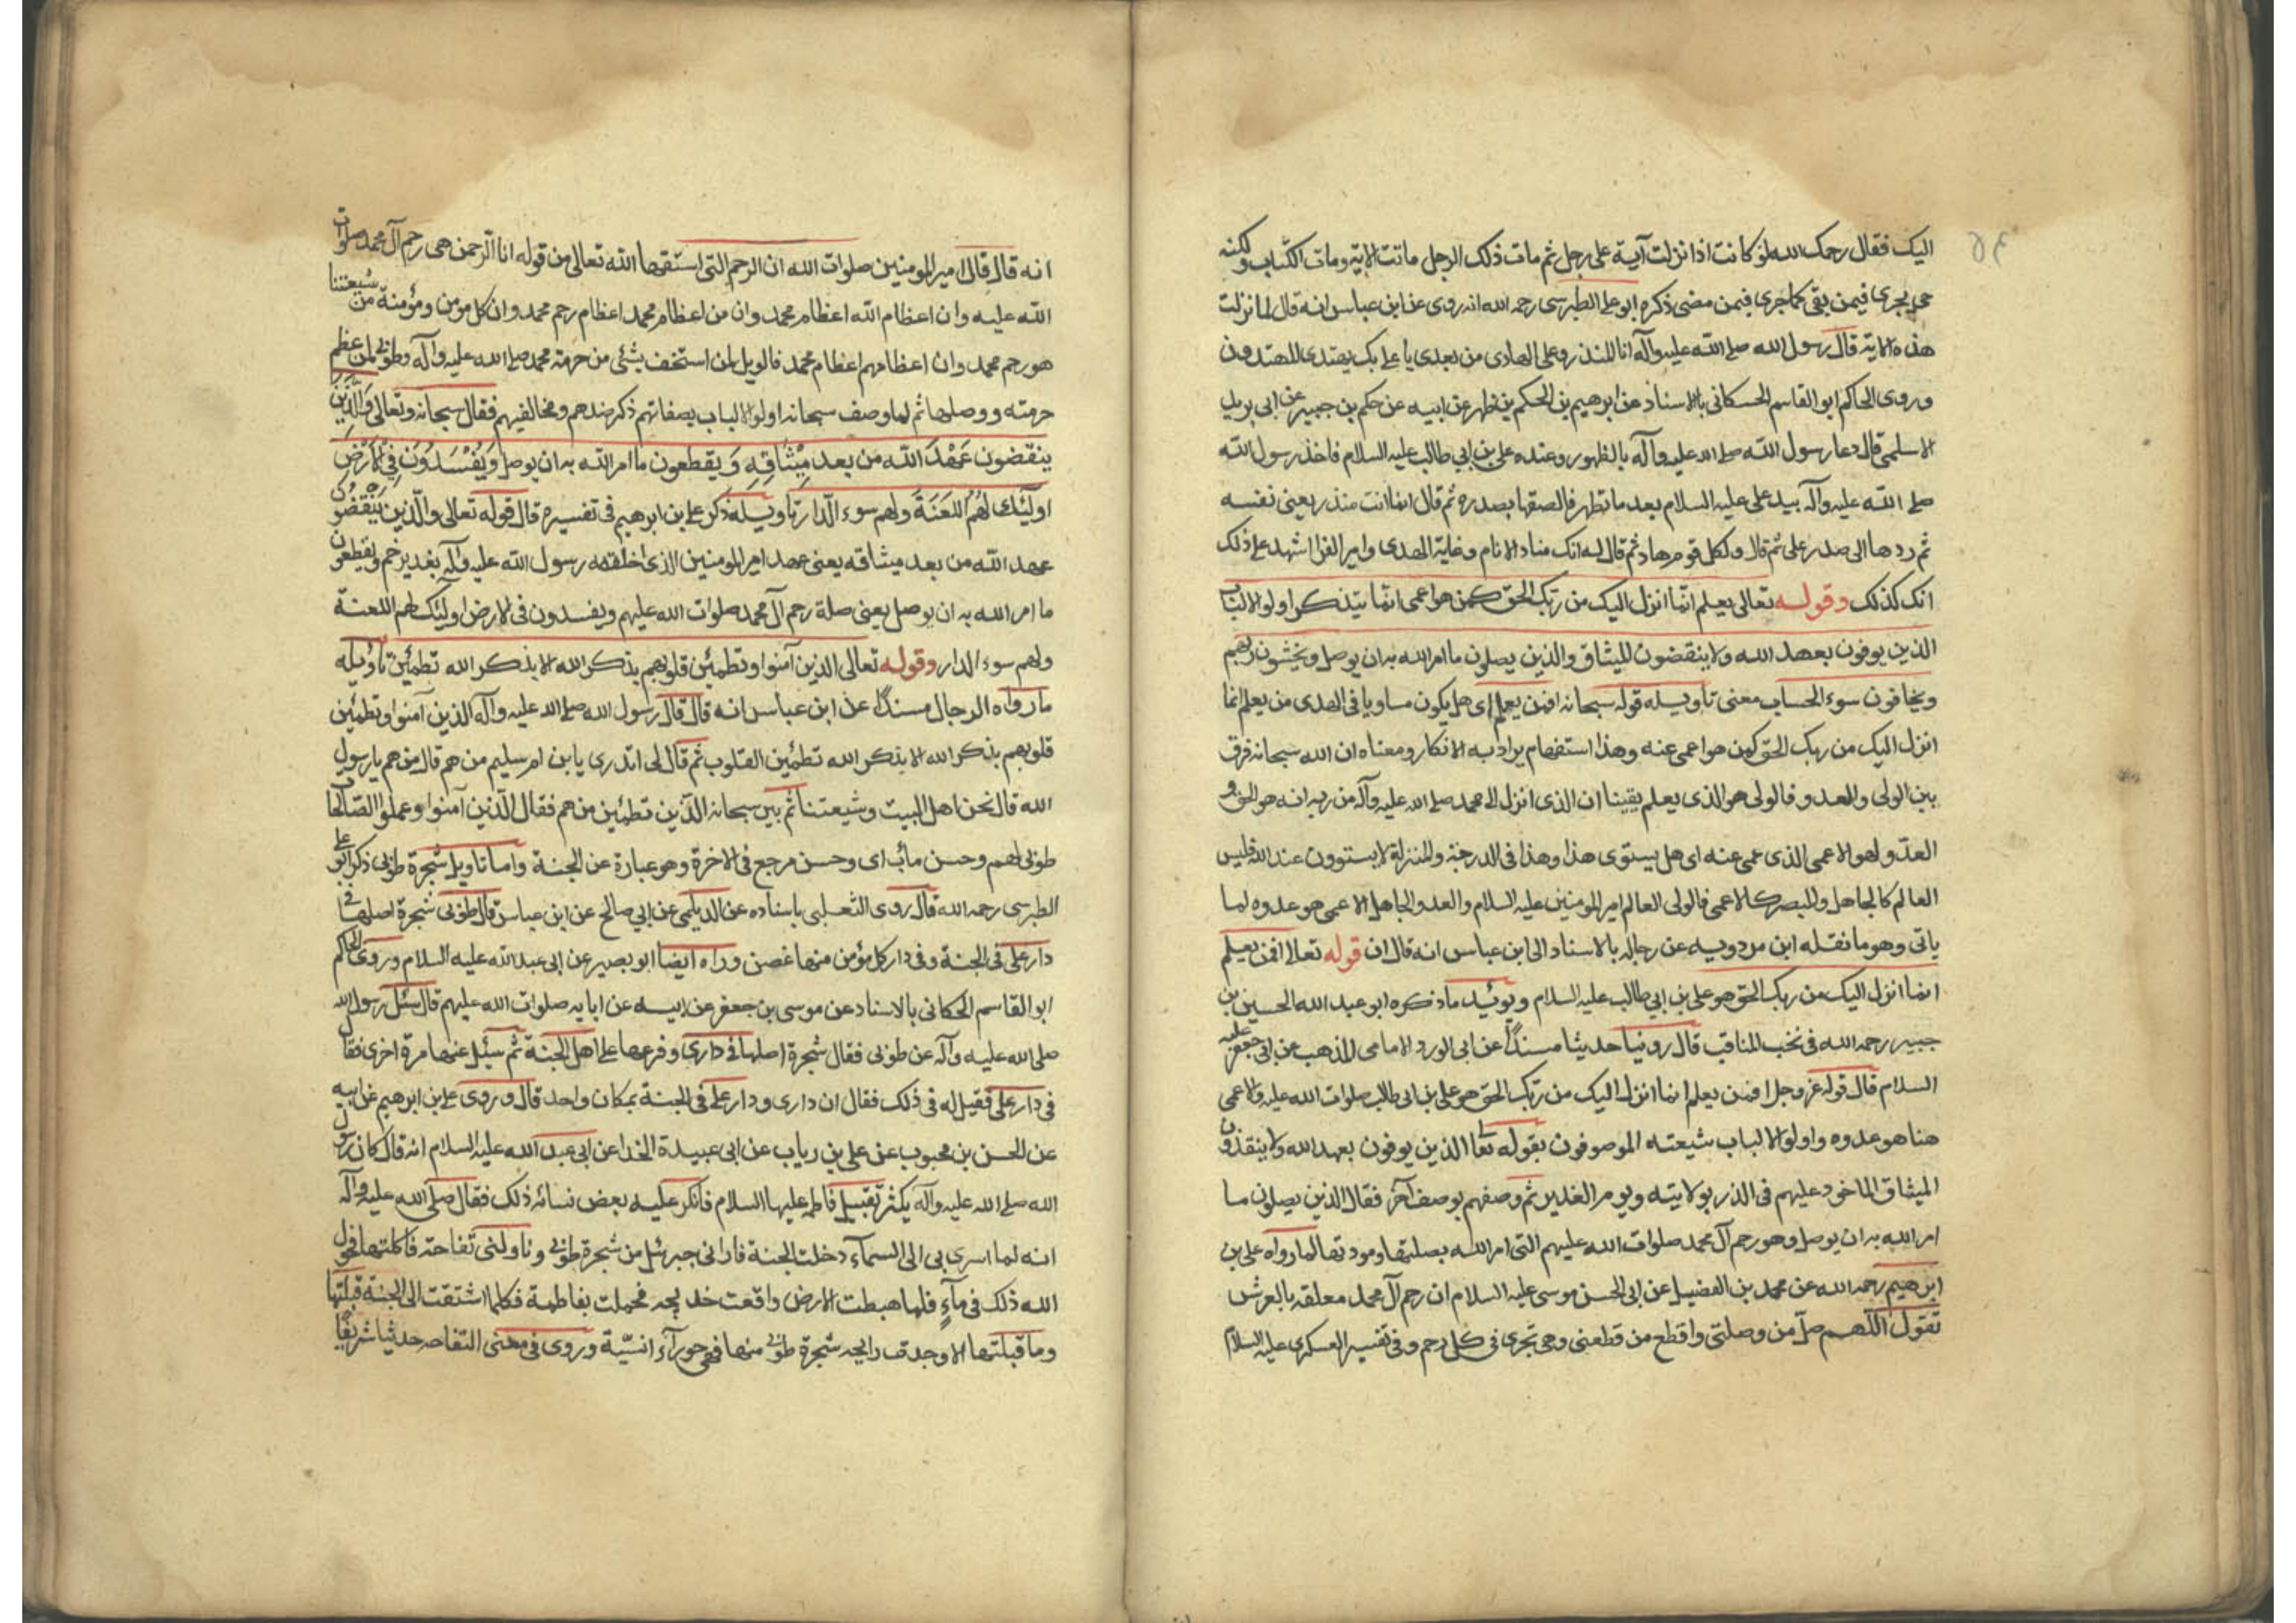 اليك فقال رحمك الله لو كانت اذا نزلت آية على رجل ثم مات ذلك الرجل ماتت الاية ومات الكتاب ولكنه
حي يجرى فيمن بقى كما جرى فيمن مضى ذكره ابو على الطبرسى رحمه الله انه روى عن ابن عباس انه قال لما نزلت
هذه الاية قال رسول الله صلى الله عليه وآله انا المنذر وعلى الهادى من بعدى يا على بك يهتدى المهتدون
وروى الحاكم ابو القاسم الحسكانى بالاسناد عن ابرهيم بن الحكم بن ظهير عن ابيه عن حكم بن جبير عن ابى بريدة
الاسلمى قال دعا رسول الله صلى الله عليه وآله بالطهور وعنده على بن ابي طالب عليه السلام فاخذ رسول الله
صلى الله عليه وآله بيد على عليه السلام بعد ما تطهر فالصقها بصدره ثم قال انما انت منذر يعنى نفسه
ثم ردها الى صدر على ثم قال ولكل قوم هاد ثم قال له انك مناد الانام وغاية الهدى وامير القرا اشهد على ذلك
انك كذلك وقوله تعالى يعلم انما انزل اليك من ربك الحق كمن هو اعمى انما يتذكر اولو الالباب
الذين يوفون بعهد الله ولا ينقضون الميثاق والذين يصلون ما امر الله به ان يوصل ويخشون ربهم
ويخافون سوء الحساب معنى تاويله قوله سبحانه افمن يعلم اى هل يكون مساويا فى الهدى من يعلم انما
انزل اليك من ربك الحق كمن هو اعمى عنه وهذا استفهام يراد به الانكار ومعناه ان الله سبحانه فرق
بين الولى والعدو فالولى هو الذى يعلم يقينا ان الذى انزل الى محمد صلى الله عليه وآله من ربه انه هو الحق و
العدو لهو الاعمى الذى عمى عنه اى هل يستوى هذا وهذا فى الدرجة والمنزلة لا يستوون عند الله فليس
العالم كالجاهل والبصير كالاعمى فالولى العالم امير المومنين عليه السلام والعدو الجاهل الاعمى هو عدوه لما
ياتى وهو ما نقله ابن مردويه عن رجاله بالاسناد الى ابن عباس انه قال ان قوله تعالى افمن يعلم
انما انزل اليك من ربك الحق هو على بن ابي طالب عليه السلام ويوئيد ما ذكره ابو عبد الله الحسين بن
جبير رحمه الله فى نخب المناقب قال روينا حديثا مسندًا عن ابى الورد الامامى المذهب عن ابى جعفر عليه
السلام قال قوله عز وجل افمن يعلم انما انزل اليك من ربك الحق هو على بن ابى طالب صلوات الله عليه والاعمى
هنا هو عدوه واولو الالباب شيعته الموصوفون بقوله تعالى الذين يوفون بعهد الله ولا ينقذون
الميثاق الماخوذ عليهم فى الذر بولايته ويوم الغدير ثم وصفهم بوصف آخر فقال الذين يصلون ما
امر الله به ان يوصل وهو رحم آل محمد صلوات الله عليهم التى امر الله بصلتها ومودتها لما رواه على بن
ابرهيم رحمه الله عن محمد بن الفضيل عن ابى الحسن موسى عليه السلام ان رحم آل محمد معلقه بالعرش
تقول اللهم صل من وصلنى واقطع من قطعنى وهى تجرى فى كل رحم وفى تفسير العسكرى عليه السلام
انه قال قال امير المومنين صلوات الله ان الرحم التى اشتقها الله تعالى من قوله انا الرحمن هى رحم آل محمد صلوات
الله عليه وان اعظام الله اعظام محمد وان من اعظام محمد اعظام رحم محمد وان كل مومن ومؤمنة من شيعتنا
هو رحم محمد وان اعظامهم اعظام محمد فالويل لمن استخف بشئى من حرمة محمد صلى الله عليه وآله وطوبى لمن عظم
حرمته ووصلها ثم لما وصف سبحانه اولو الالباب بصفاتهم ذكر ضدهم ومخالفيهم فقال سبحانه وتعالى والذين
ينقضون عهد الله من بعد ميثاقه ويقطعون ما امر الله به ان يوصل ويفسدون فى الارض
اولئك لهم اللعنة ولهم سوء الدار تاويله ذكر على بن ابرهيم فى تفسيره قال قوله تعالى والذين ينقضون
عهد الله من بعد ميثاقه يعنى عهد امير المومنين الذى اخلفه رسول الله عليه وآله بغدير خم ويقطعون
ما امر الله به ان يوصل يعنى صلة رحم آل محمد صلوات الله عليهم ويفسدون فى الارض اولئك لهم اللعنة
ولهم سوء الدار وقوله تعالى الذين آمنوا وتطمئن قلوبهم بذكر الله الا بذكر الله تطمئن تاويله
ما رواه الرجال مسندًا عن ابن عباس انه قال قال رسول الله صلى الله عليه وآله الذين آمنوا وتطمئن
قلوبهم بذكر الله الا بذكر الله تطمئن القلوب ثم قال لى اتدرى يا بن ام سليم من هم قال من هم يا رسول
الله قال نحن اهل البيت وشيعتنا ثم بين سبحانه الذين تطمئن من هم فقال الذين آمنوا وعملوا الصالحات
طوبى لهم وحسن مآب اى وحسن مرجع فى الاخرة وهو عبارة عن الجنة واما تاويل شجرة طوبى ذكر ابو على
الطبرسى رحمه الله قال روى الثعلبى باسناده عن الديلمى عن ابي صالح عن ابن عباس قال طوبى شجرة اصلها فى
دار على فى الجنة وفى دار كل مؤمن منها غصن وراه ايضا ابو بصير عن ابى عبد الله عليه السلام وروى الحاكم
ابو القاسم الحكانى بالاسناد عن موسى بن جعفر عن ابيه عن ابايه صلوات الله عليهم قال سئل رسول الله
صلى الله عليه وآله عن طوبى فقال شجرة اصلها فى دارى وفرعها على اهل الجنة ثم سئل عنها مرة اخرى فقال
فى دار على فقيل له فى ذلك فقال ان دارى ودار على فى الجنة بمكان واحد قال وروى على بن ابرهيم عن ابيه
عن الحسن بن محبوب عن على بن رياب عن ابى عبيدة الخدا عن ابى عبد الله عليه السلام انه قال كان رسول
الله صلى الله عليه وآله يكثر تقبيل فاطمه عليها السلام فانكر عليه بعض نسائه ذلك فقال صلى الله عليه وآله
انه لما اسرى بى الى السمآء دخلت الجنة فادانى جبرئل من شجرة طوبى وناولنى تفاحة فاكلتها فحول
الله ذلك فى مآءٍ فلما هبطت الارض واقعت خديجه فحملت بفاطمة فكلما اشتقت الى الجنة قبلتها
وما قبلتها الا وجدت رايحه شجرة طوبى منها فهى حورآء انسيّة وروى فى معنى التفاحه حديثا شريفًا